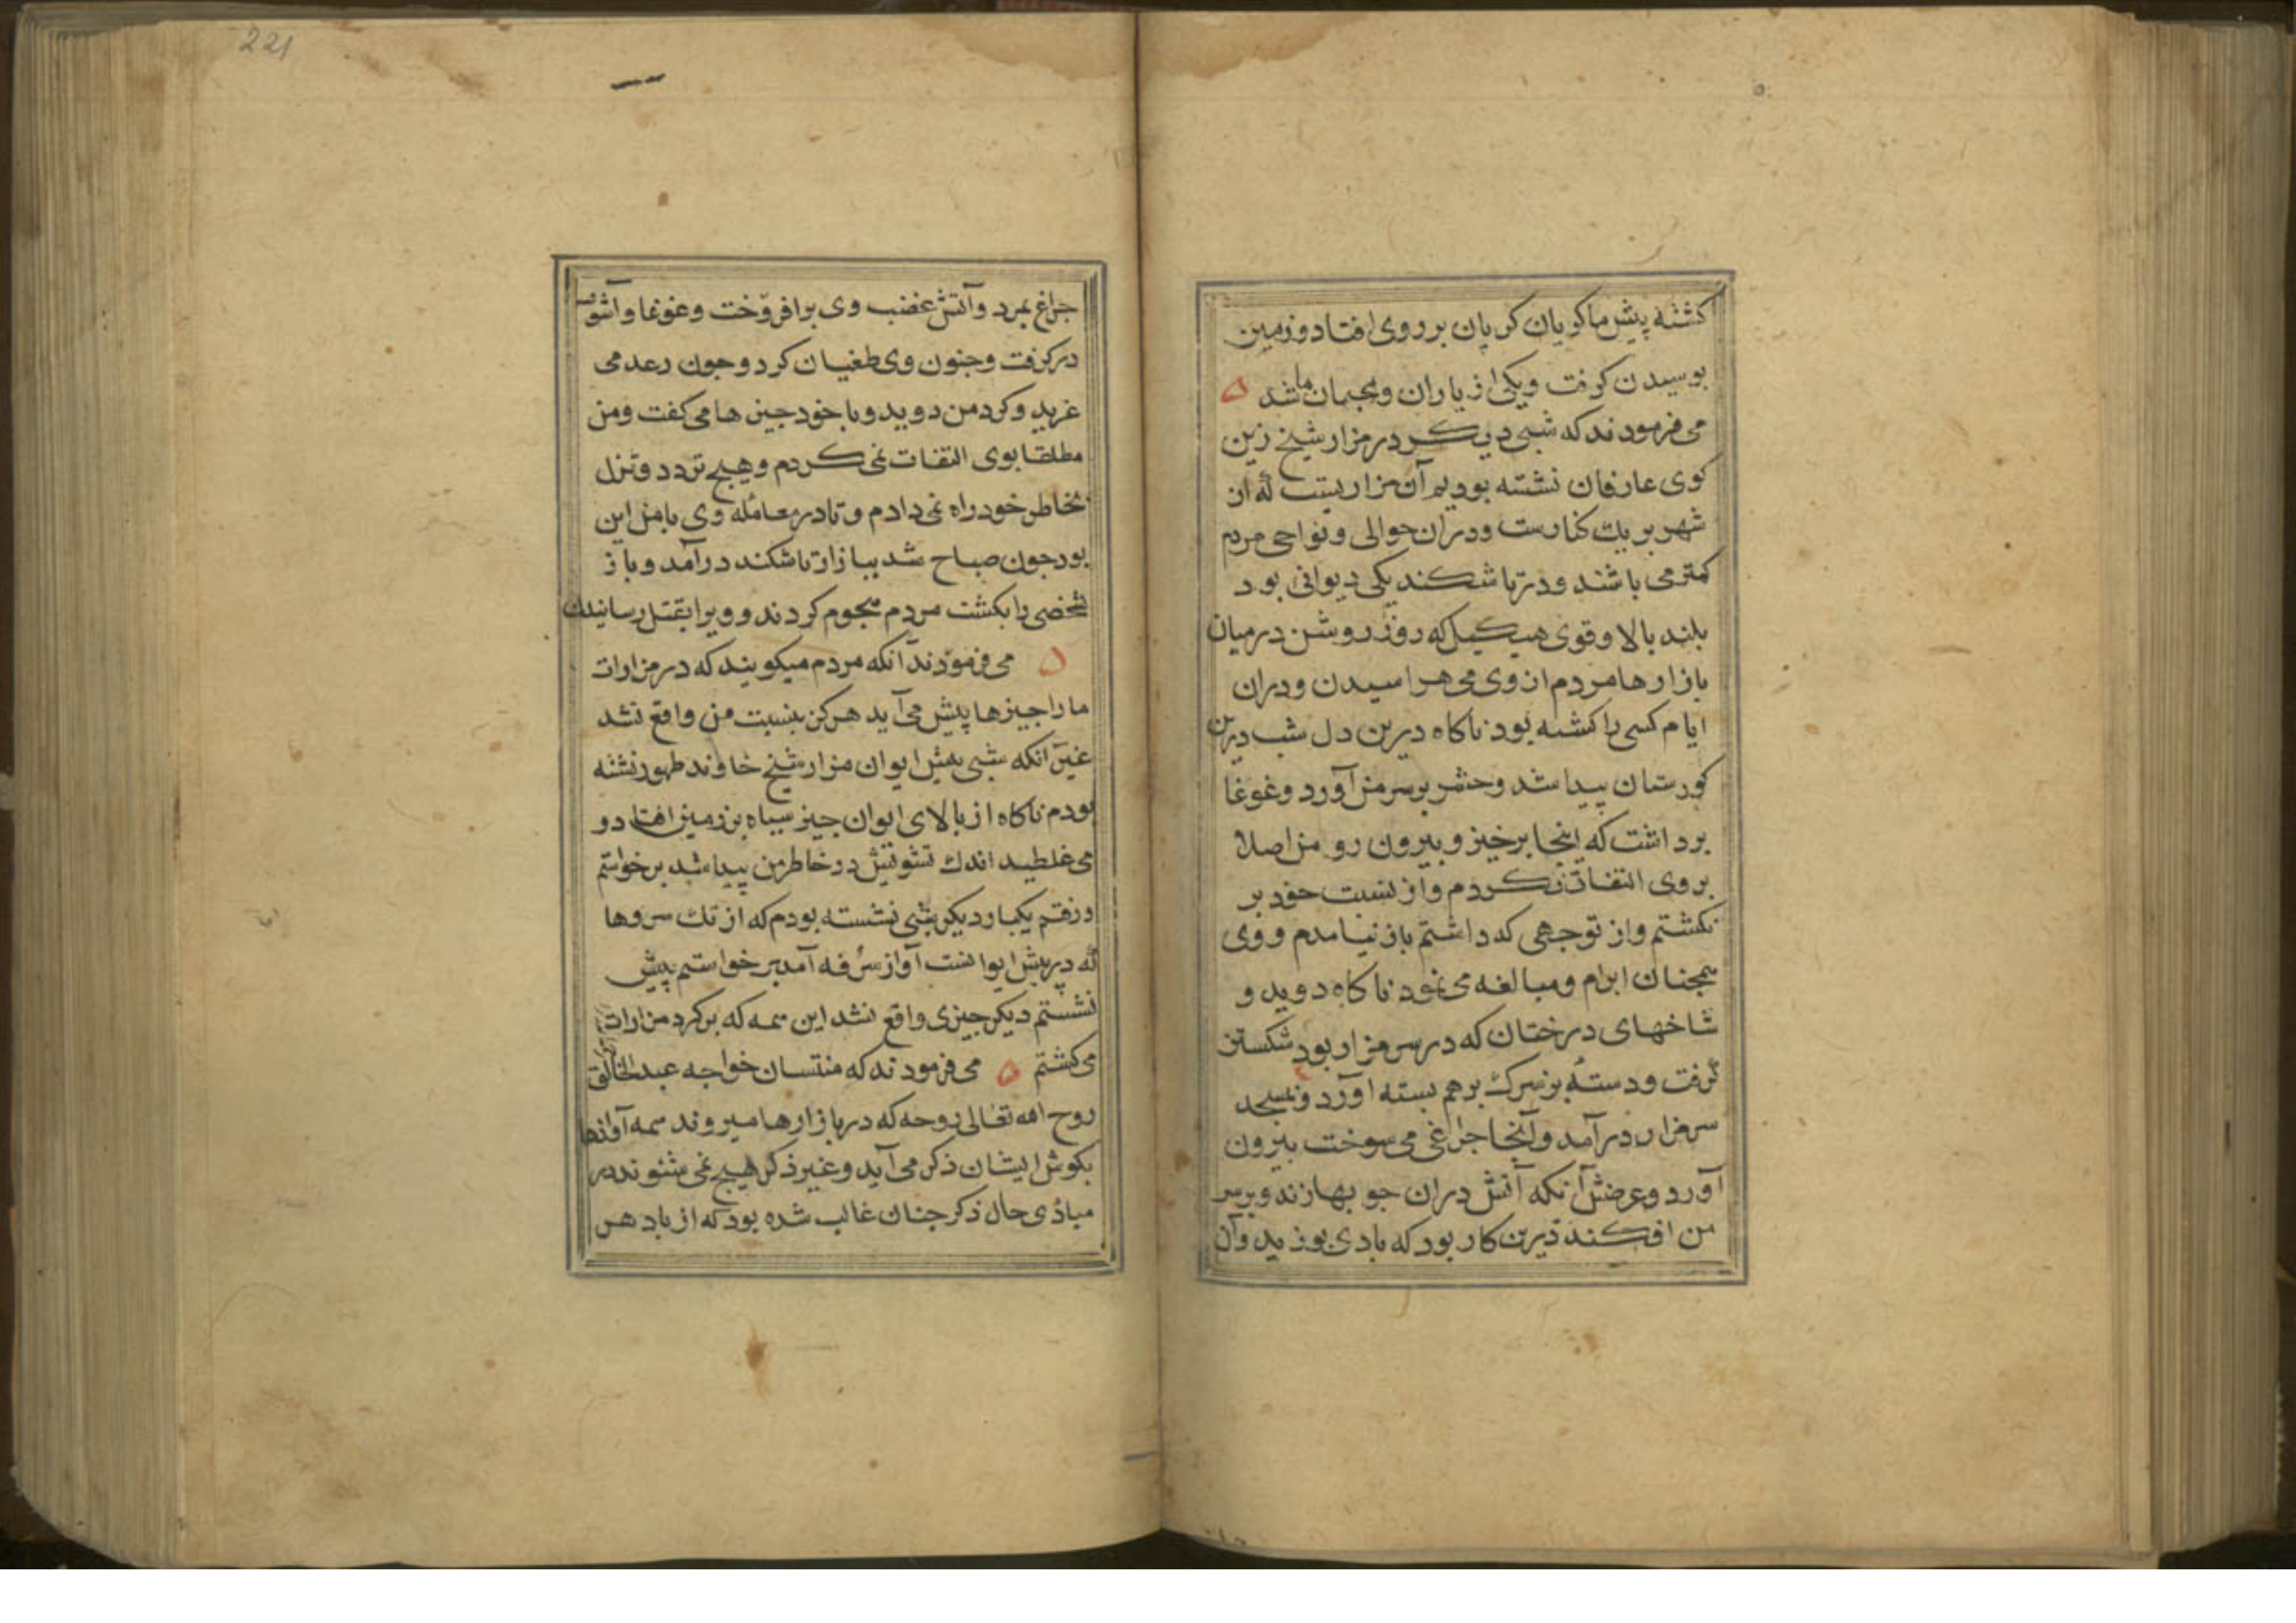 کشته پیش ما کویان کریان بر روی افتاد و زمین
بوسیدن کرفت و یکی از یاران و محبان ما شد
می فرمودند که شبی دیکر در مزار شیخ زین
کوی عارفان نشسته بودیم آن مزاریست که از
شهر بر یک کنارست و دران حوالی و نواحی مردم
کمتر می باشند و در تاشکند یکی دیوانی بود
بلند بالا و قوی هیکیل که روز روشن در میان
بازارها مردم از وی می هراسیدن و دران
ایام کسی را کشته بود ناکاه درین دل شب درین
کورستان پیدا شد و حشر بر سر من آورد و غوغا
برداشت که اینجا برخیز و بیرون رو من اصلا
بروی التفات نکردم و از نسبت خود بر
نکشتم و از توجهی که داشتم باز نیامدم و وی
همچنان ابرام و مبالغه می نمود ناکاه دوید و
شاخهای درختان که در سر مزار بود شکستن
کرفت و دستهٔ بزرک بر هم بسته آورد و بمسجد
سر مزار درآمد و آنجا چراغی می سوخت بیرون
آورد و غرضش آنکه آتش دران جوبها زند و بر سر
من افکند درین کار بود که بادی بوزید و آن
221
جراغ بمرد و آتش غضب وی برافروخت و غوغا و آشوب
درکرفت و جنون وی طغیان کرد و جون رعد می
غرید و کرد من دوید و با خود جیزها می کفت و من
مطلقا بوی التفات نمی کردم و هیچ تردد و تزل
بخاطر خود راه نمی دادم و تا در معامله وی با من این
بود جون صباح شد ببازار تاشکند درآمد و باز
شخصی را بکشت مردم هجوم کردند و ویرا بقتل رسانیدن
می فرمودند آنکه مردم میکویند که در مزارات
ما را جیزها پیش می آید هرکز بنسبت من واقع نشد
غیر آنکه شبی پیش ایوان مزار شیخ خاوند طهور نشسته
بودم ناکاه از بالای ایوان جیز سیاه بر زمین افتاد و
می غلطید اندک تشویش در خاطر من پیدا شد برخواستم
و رفتم یکبار دیکر شبی نشسته بودم که از تک سروها
که در پیش ایوانست آواز سرفه آمد برخواستم پیش
نشستم دیکر جیزی واقع نشد این همه که بر کرد مزارات
می کشتم می فرمودند که منتسبان خواجه عبدالخالق
روح الله تعالی روحه که در بازارها میروند همه آوازها
بکوش ایشان ذکر می آید و غیر ذکر هیچ نمی شنوند در
مبادی حال ذکر جنان غالب شده بود که از باد هر